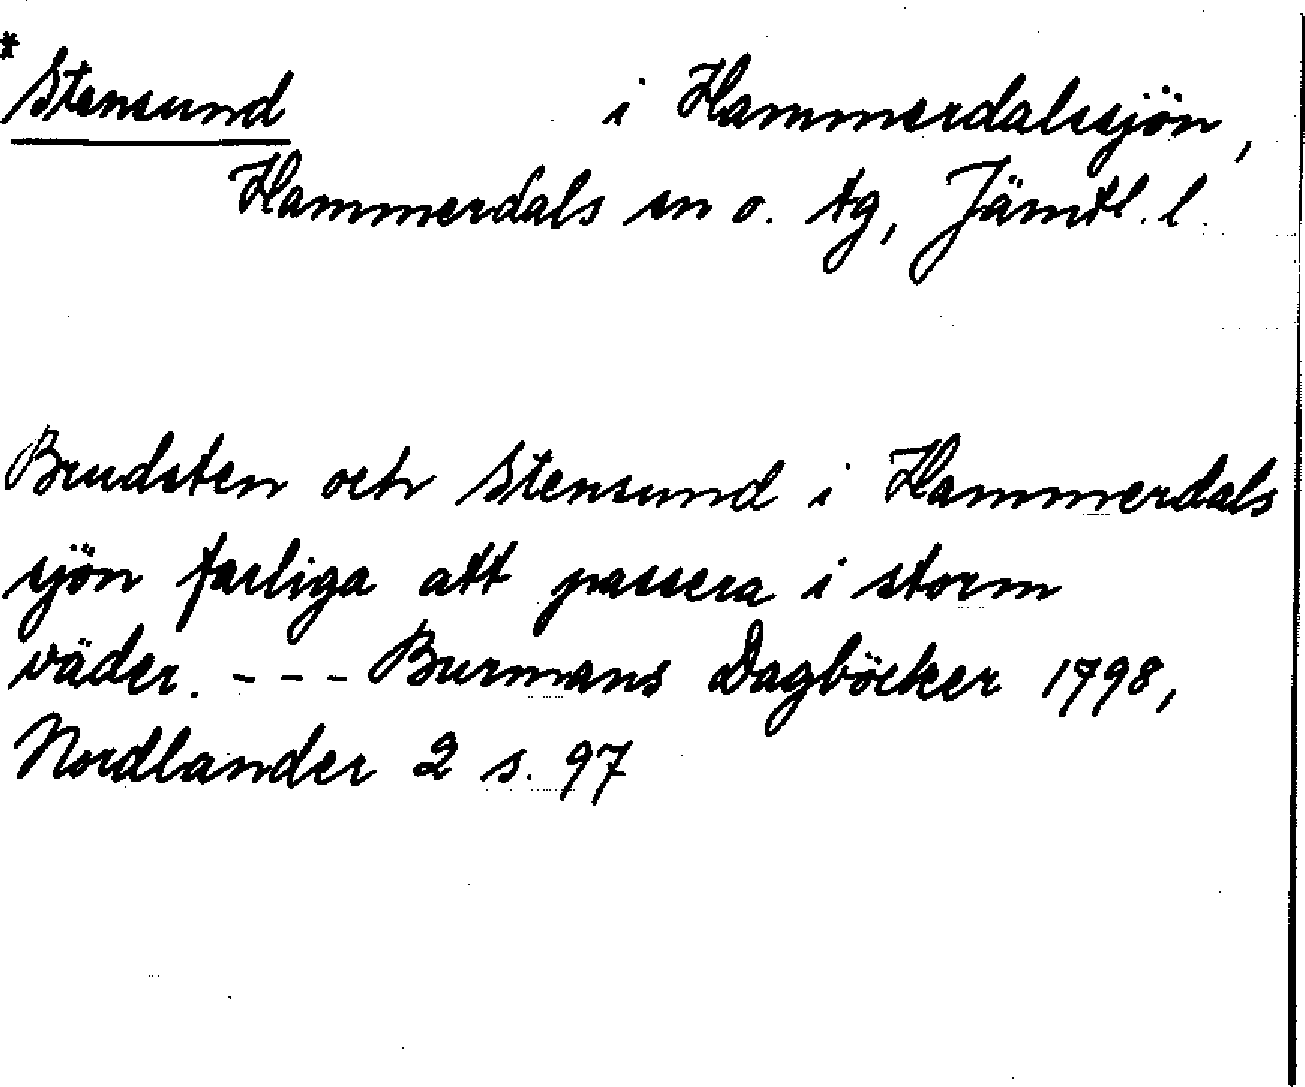 *Stensund i Hammerdalssjön,
Hammerdals sn o. tg, Jämtl. l.
Brudsten och Stensund i Hammerdals
sjön farliga att passera i storm
väder. --- Burmans Dagböcker 1798,
Nordlander 2 s. 97